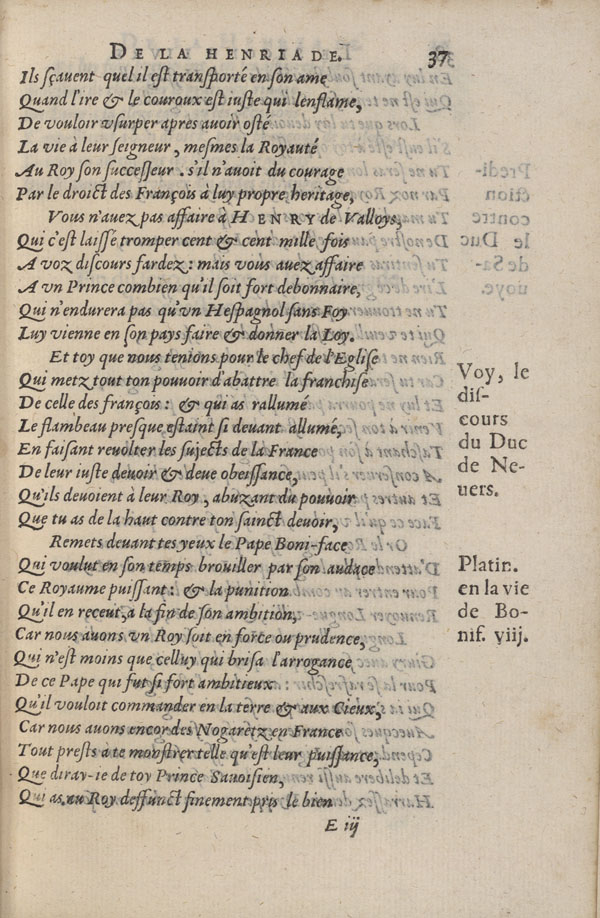 DE LA HENRIADE. 37
Ils sçavent quel il est transporté en son ame
Quand l'ire & le couroux est iuste qui l'enflame,
De vouloir vsurper apres auoir osté
La vie à leur seigneur, mesmes la Royauté
Au Roy son successeur. s'il n'auoit du courage
Par le droict des François à luy propre heritage,
Vous n'auez pas affaire à HENRY de Valloys,
Qui c'est laissé tromper cent & cent mille fois
A voz discours fardez: mais vous auez affaire
A vn Prince combien qu'il soit fort debonnaire,
Qui n'endurera pas qu'vn Hespagnol sans Foy
Luy vienne en son pays faire & donner la Loy.
Et toy que nous tenions pour le chef de l'Eglise
Qui metz tout ton pouuoir d'abattre la franchise
De celle des françois: & qui as rallumé
Le flambeau presque estaint si deuant allumé,
En faisant reuolter les sujects de la France
De leur iuste deuoir & deue obeissance,
Qu'ils deuoient à leur Roy, abuzant du pouuoir
Que tu as de la haut contre ton sainct deuoir,
Remets deuant tes yeux le Pape Boni-face
Qui voulut en son temps brouiller par son audace
Ce Royaume puissant: & la punition
Qu'il en receut, a la fin de son ambition,
Car nous auons vn Roy soit en force ou prudence,
Qui n'est moins que celluy qui brisa l'arrogance
De ce Pape qui fut si fort ambitieux:
Qu'il vouloit commander en la terre & aux Cieux,
Car nous auons encor des Nogaretz en France
Tout prests à te monstrer telle qu'est leur puissance,
Que diray-ie de toy Prince Sauoisien,
Qui as au Roy deffunct finement pris le bien
E iij
Voy, le
dis-
cours
du Duc
de Ne-
uers.
Platin.
en la vie
de Bo-
nif. viij.